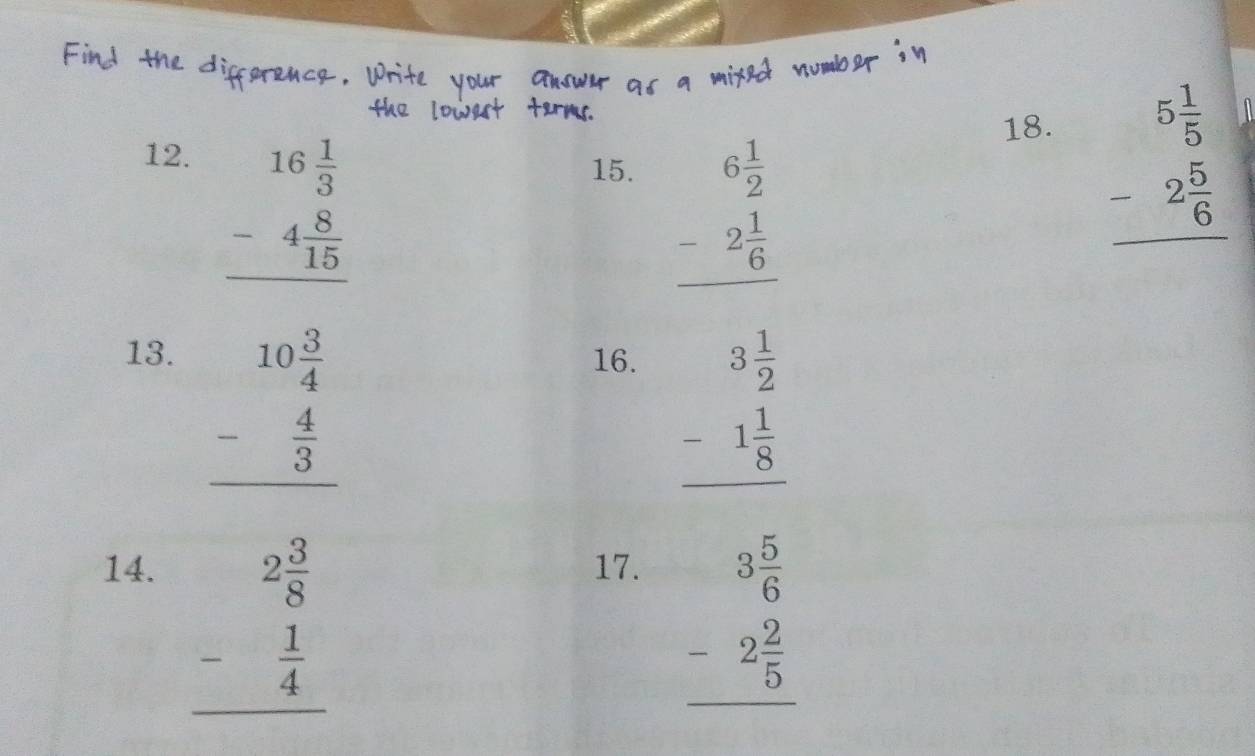 Find the difference. Write your answer as a mixed number in
the lowest terms.
12. 16 1/3
- 4 8/15
13. 10 3/4
- 4/3
14. 2 3/8
- 1/4
15. 6 1/2
- 2 1/6
16. 3 1/2
- 1 1/8
17. 3 5/6
- 2 2/5
18. 5 1/5
- 2 5/6